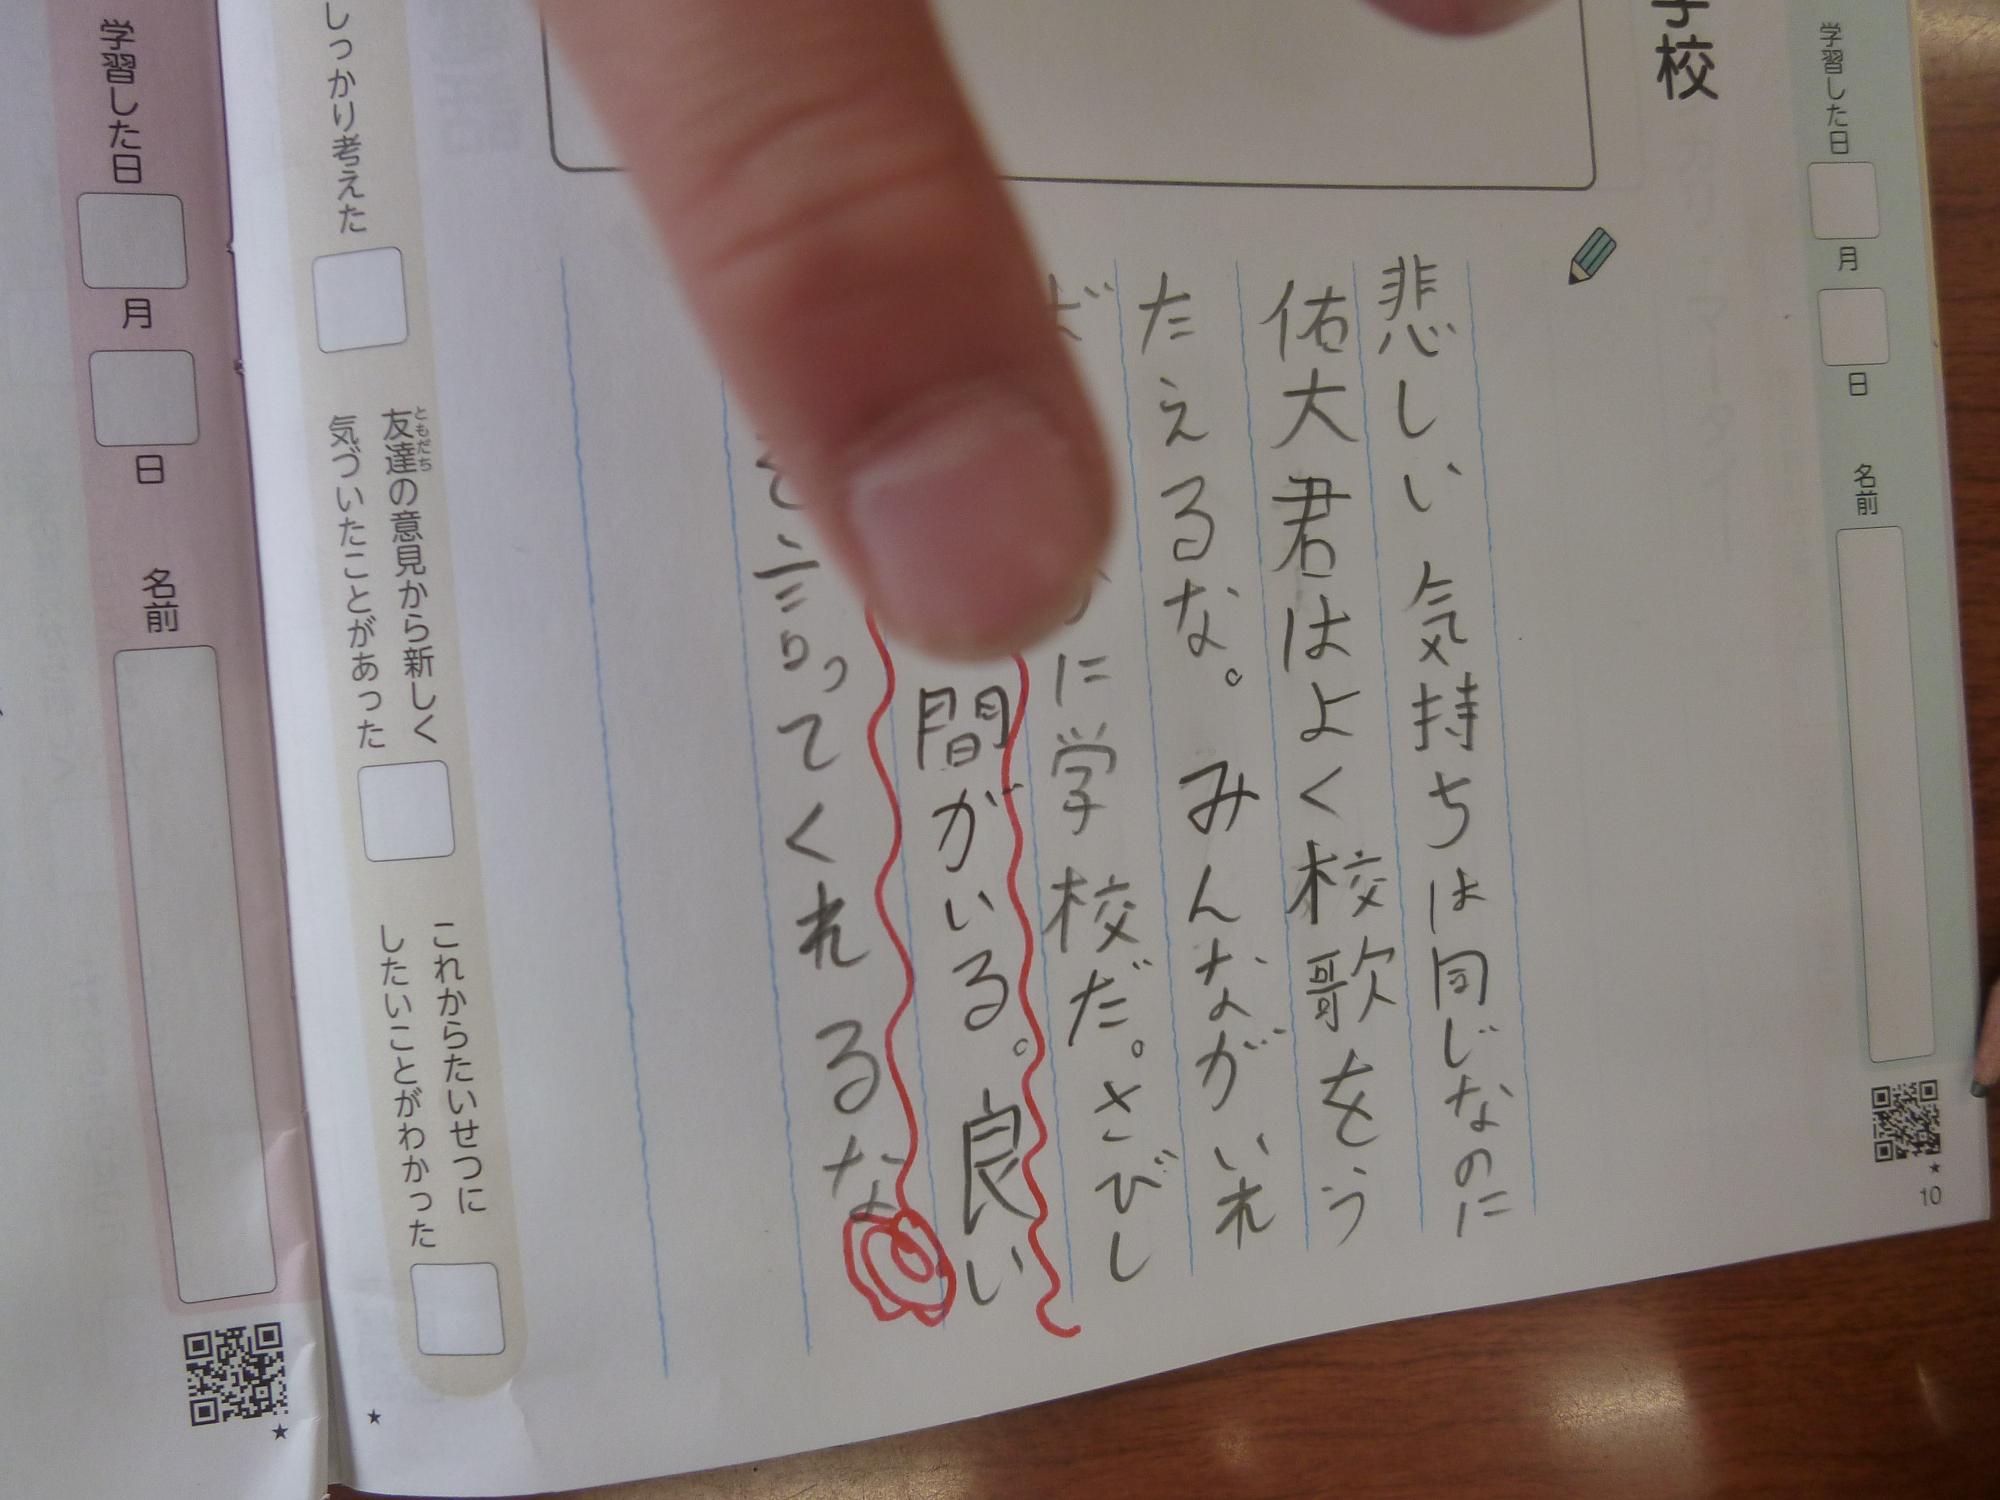 学校
学習した日
月
日
名前
10
悲しい気持ちは同じなのに
佑大君はよく校歌をう
たえるな。みんながいれ
ば
に学校だ。さびし
間がいる。良い
を言ってくれるな
しっかり考えた
友達の意見から新しく
ともだち
気づいたことがあった
これからたいせつに
したいことがわかった
学習した日
月
日
名前